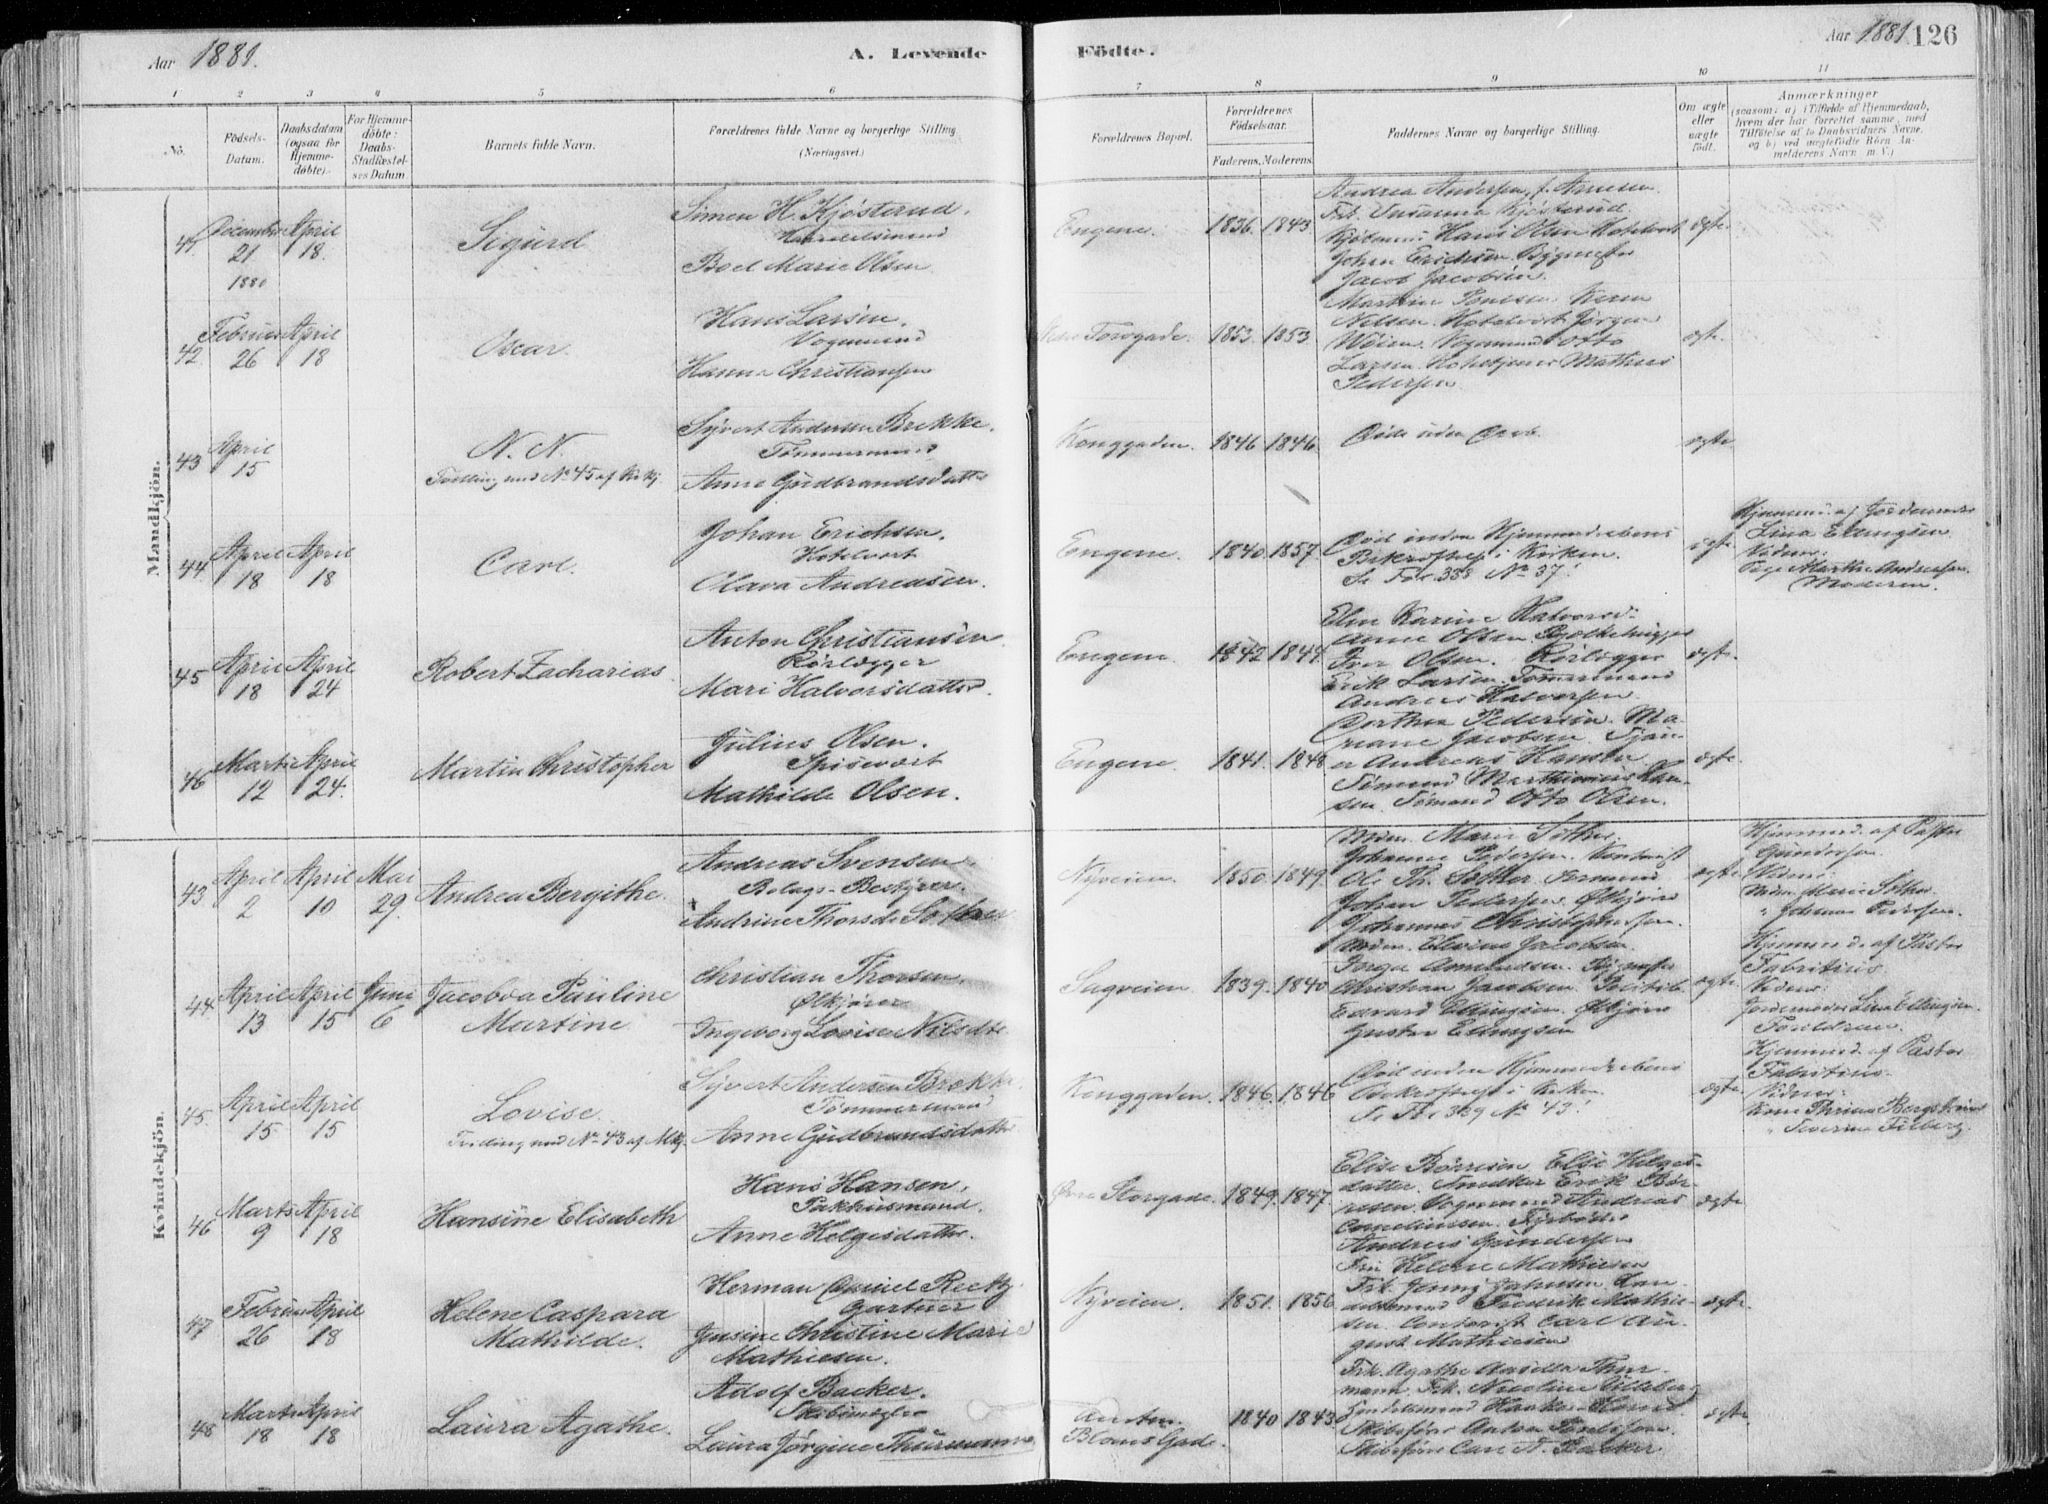 Aar 1881.
A. Levende
Födte.
Aar 1881
126
1 2 3 4 5 6
7 8 9 10 11
No.
Födsels-
Datum.
Daabsdatum
(ogsaa for
Hjemme-
døbte).
For Hjemme-
døbte:
Daabs-
Stadfæstel-
ses Datum
Barnets fulde Navn.
Forældrenes fulde Navne og borgerlige Stilling
(Næringsvei.)
Forældrenes Bopæl.
Forældrenes
Födselsaar.
Faderens. Moderens.
Faddernes Navne og borgerlige Stilling.
Om ægte
eller
uægte
født.
Anmærkninger
(saasom: a) i Tilfælde af Hjemmedaab,
hvem der har forrettet samme, med
Tilföielse af to Daabsvidners Navne.
og b) ved uægtefödte Börn An-
melderens Navn m. V.)
Mandkjön.
41
December
21
1880
April
18.
Sigurd
Simen H. Kjösterud.
Handelsmand
Boel Marie Olsen
Engene.
1836. 1843
Andrea Andersen, f. Arnesen.
Frk. Susanna Kjösterud
Hans Olsen Hotelvert
Johan Erichsen
Jacob Jacobsen
ægte.
42.
Februar
26
April
18
Oscar.
Hans Larsen.
Vognmand
Hanna Christiansen
Torvgade.
1853. 1853.
Nelsen. Hotelvert Jörgen
Vognmand Otto
Larsen Mathias
Pedersen
ægte.
43
April
15
N. N.
Tvilling med No 45 af Kvkj.
Syvert Andersen Brekke.
Tømmermand
Anne Gudbrandsdatter
Konggaden.
1846 1846.
Døde uden Daab.
ægte
44.
April
18
April
18
Carl.
Johan Erichsen.
Hotelvert
Olava Andreasen.
Engene.
1840. 1857
Død inden Hjemmedaabens
Bekræftelse i Kirken.
No 37.
ægte
Hjemmed. af Jordemoder
Lina Ellingsen
Vidner:
Pige Marthe Andreasen.
Moderen.
45
April
18
April
24
Robert Zacharias
Anton Christiansen
Rørlægger
Mari Halvorsdatter.
Engene
1842 1844.
Elen Karine Halvorsd:
Anne Olsen. Bjelkehugger
Iver Olsen. Rörlægger
Erik Larsen. Tömmermand
Andreas Halvorsen.
ægte.
46
Marts
12
April
24.
Martin Christopher
Julius Olsen.
Spisevert
Mathilde Olsen.
Engene.
1841. 1848
Dorthea Pedersen. Ma-
riane Jacobsen. Tjen-
er Andreas Hansen
Sømand Marthinius Han-
sen. Sømand Otto Olsen.
ægte.
Kvindekjön.
43
April
2
April
10
Mai
29.
Andrea Bergithe.
Andreas Svensen
Bolags-Bestyrer.
Andrine Thorsdr Sother
Nyveien.
1850. 1849
Madm. Marie Sother.
Johanne Pedersen. Kontorist
Ole Th. Sother
Johan Pedersen
Johannes Christophersen.
ægte.
Hjemmed. af Pastor
Gundersen.
Vidner:
Madm Marie Sother.
" Johanne Pedersen.
44
April
13
April
15
Juni
6
Jacobea Pauline
Martine
Christian Thorsen.
Ølkjører
Ingeborg Lovise Nilsdtr
Sagveien.
1839. 1840
Madm. Elevine Jacobsen.
Christian Jacobsen
Edvard Ellingsen. Ølkjører
Gustav Ellingsen
ægte.
Hjemmed. af Pastor
Fabritius.
Vidner:
Jordemoder Lina Ellingsen.
Forældrene.
45.
April
15
April
15
Lovise.
Tvilling med No 43 af Mkj.
Syvert Andersen Brekke
Tømmermand
Anne Gudbrandsdatter
Konggaden.
1846. 1846
Død inden Hjemmedaabens
Bekræftelse i Kirken
No 43.
ægte
Hjemmed. af Pastor
Fabritius.
Vidner:
" Severine Filberg.
46
Marts
9
April
18
Hansine Elisabeth
Hans Hansen.
Pakhusmand.
Anne Helgesdatter.
Øvre Storgade.
1849. 1847
Elise Børresen. Elise Helges-
datter. Snedker Erik Bør-
resen. Vognmand Andreas
Corneliussen.
Andreas Gundersen
ægte
47
Februar
26
April
18
Helene Caspara
Mathilde.
Herman Daniel
Gartner
Jensine Christine Marie
Mathiesen.
Nyveien.
1851. 1856.
Fru Helene Mathiesen
Frk. Jenny Johnsen. Han-
delsmand Fredrik Mathie-
sen. Contorist Carl Au-
gust Mathiesen
ægte.
48
Marts
18
April
18
Laura Agathe.
Adolf Backer.
Skibsmægler
Laura Jørgine Thurmann
Austen
Bloms Gade.
1840 1843.
Frk. Agathe Thur-
mann. Frk. Nicoline
Handelsmand
Skibsfører Anton
Skibsfører Carl A. Backer.
ægte.